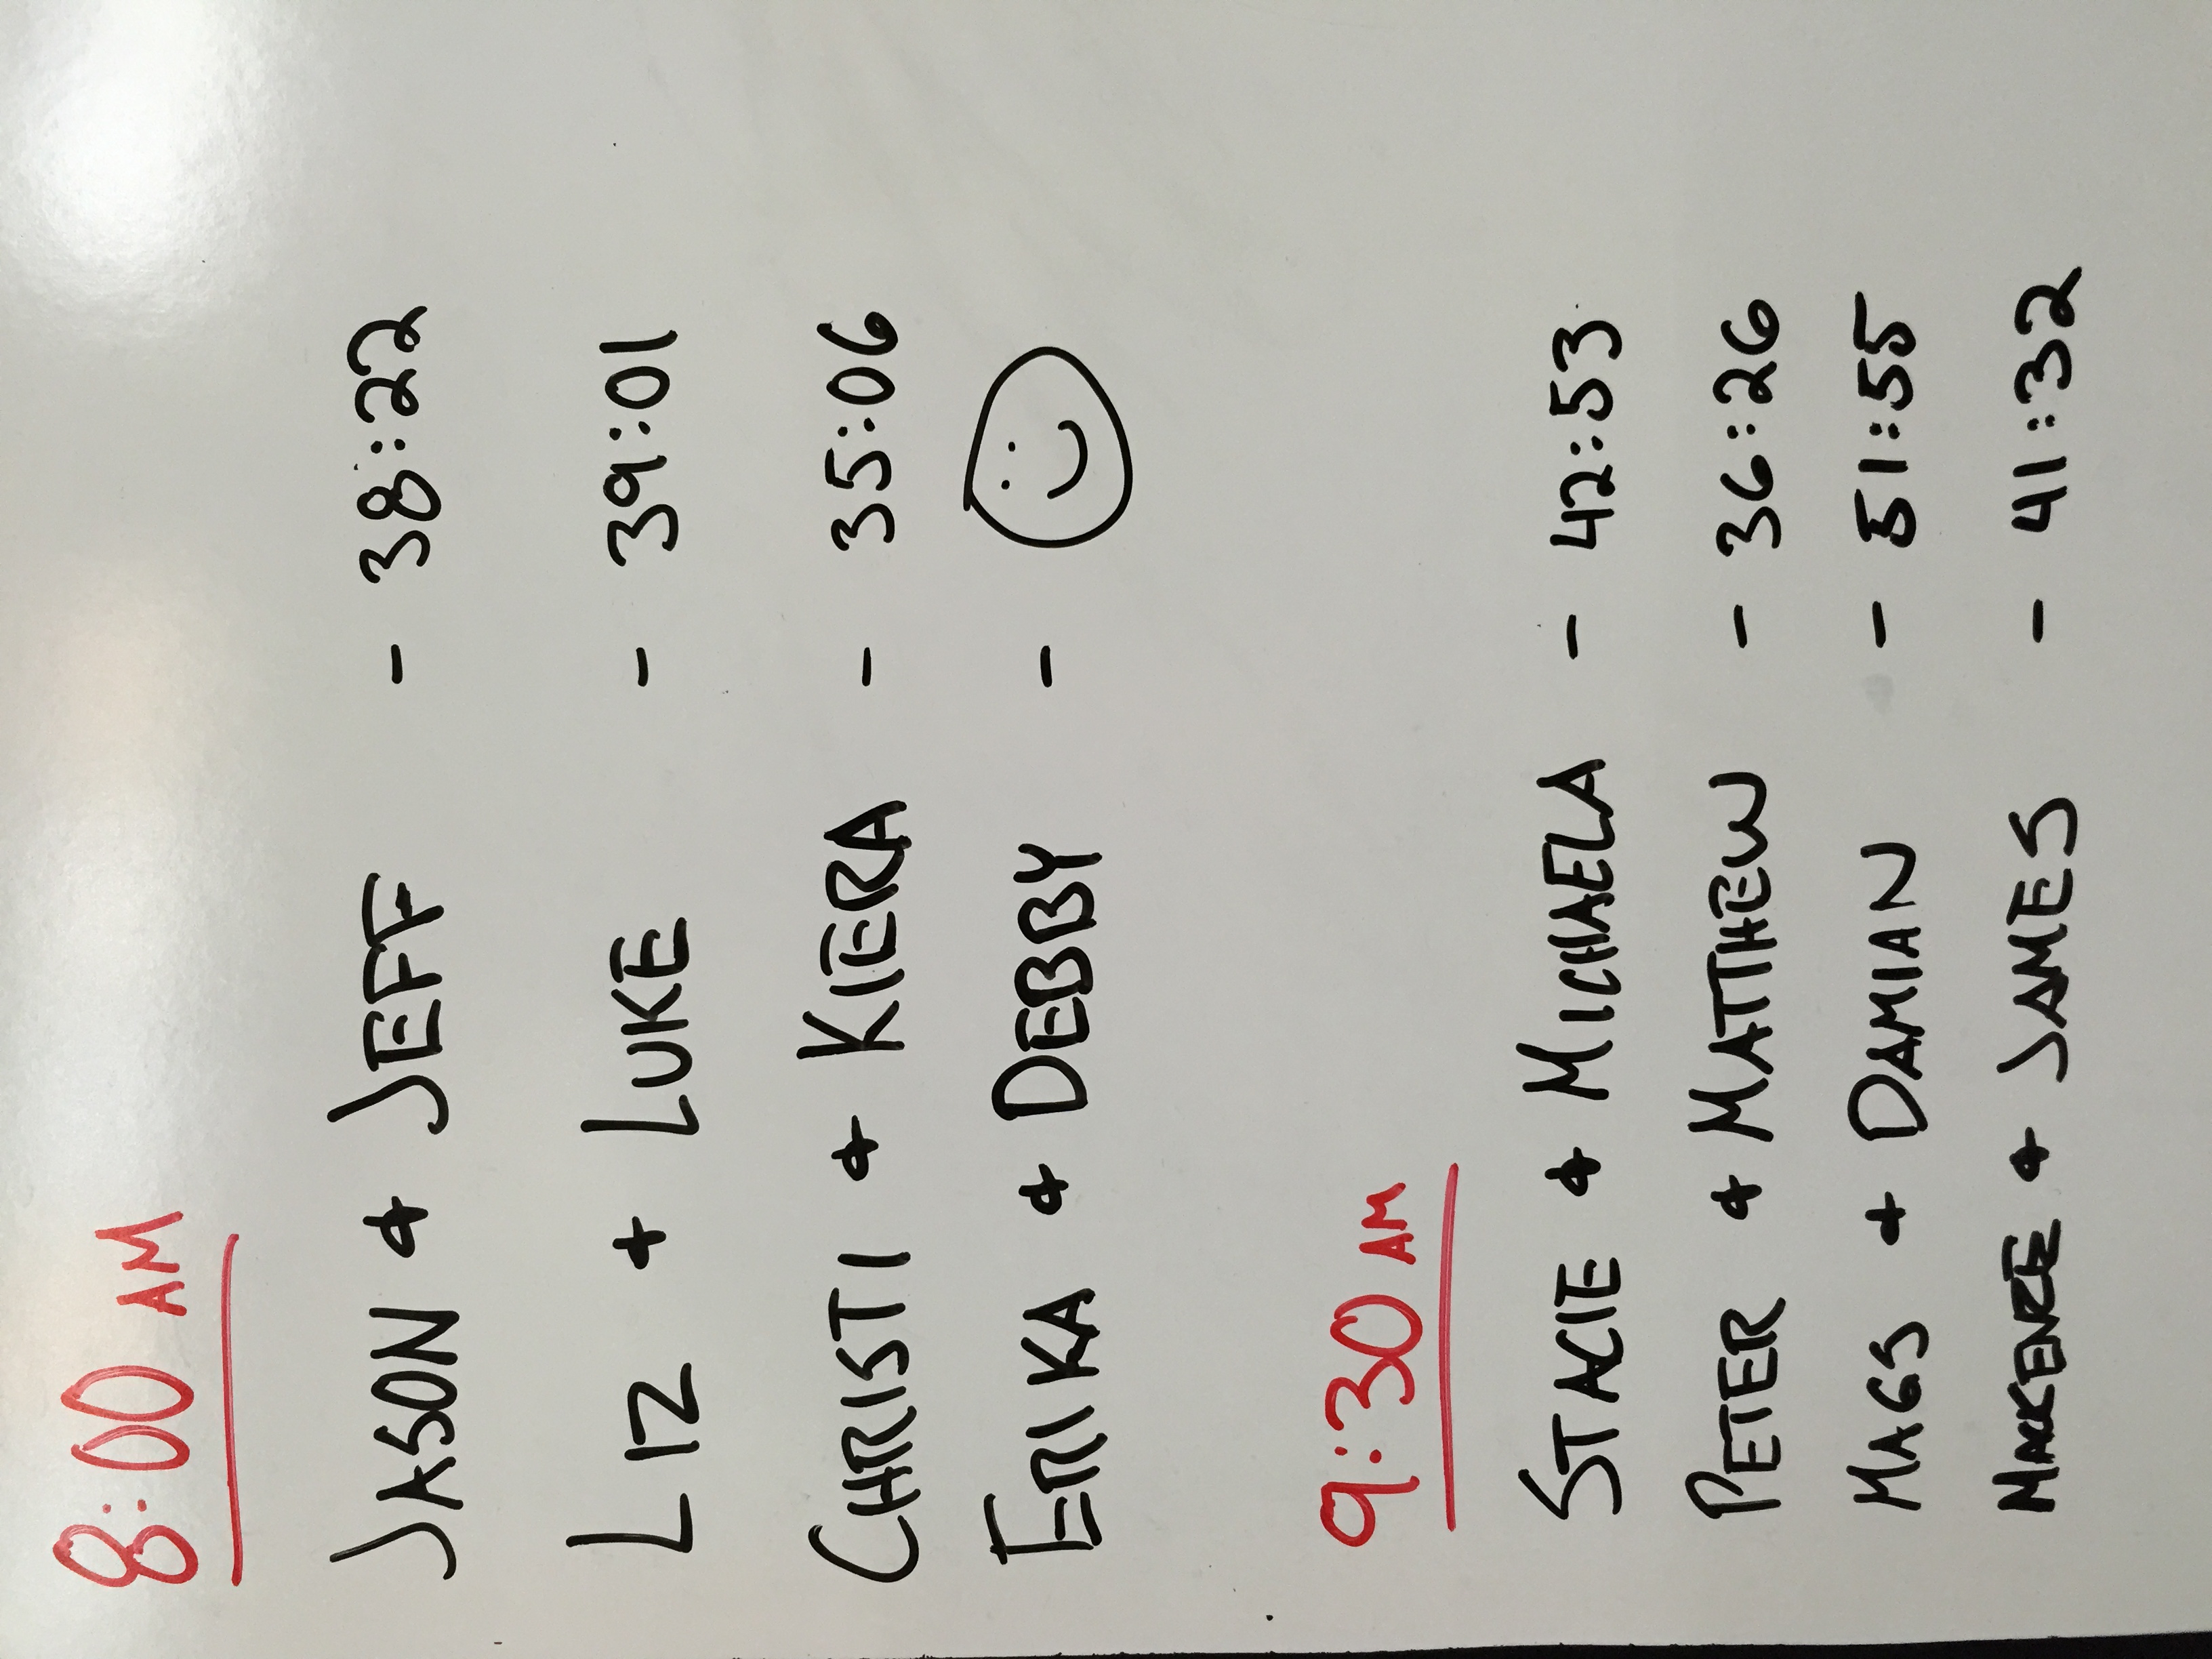 8:00 AM
JASON + JEFF - 38:22
LIZ + LUKE - 39:01
CHRISTI + KIERA - 35:06
ERIKA + DEBBY -
9:30 AM
STACIE + MICHAELA - 42:53
PETER + MATTHEW - 36:26
MAGS + DAMIAN - 51:55
MACKENZIE + JAMES - 41:32